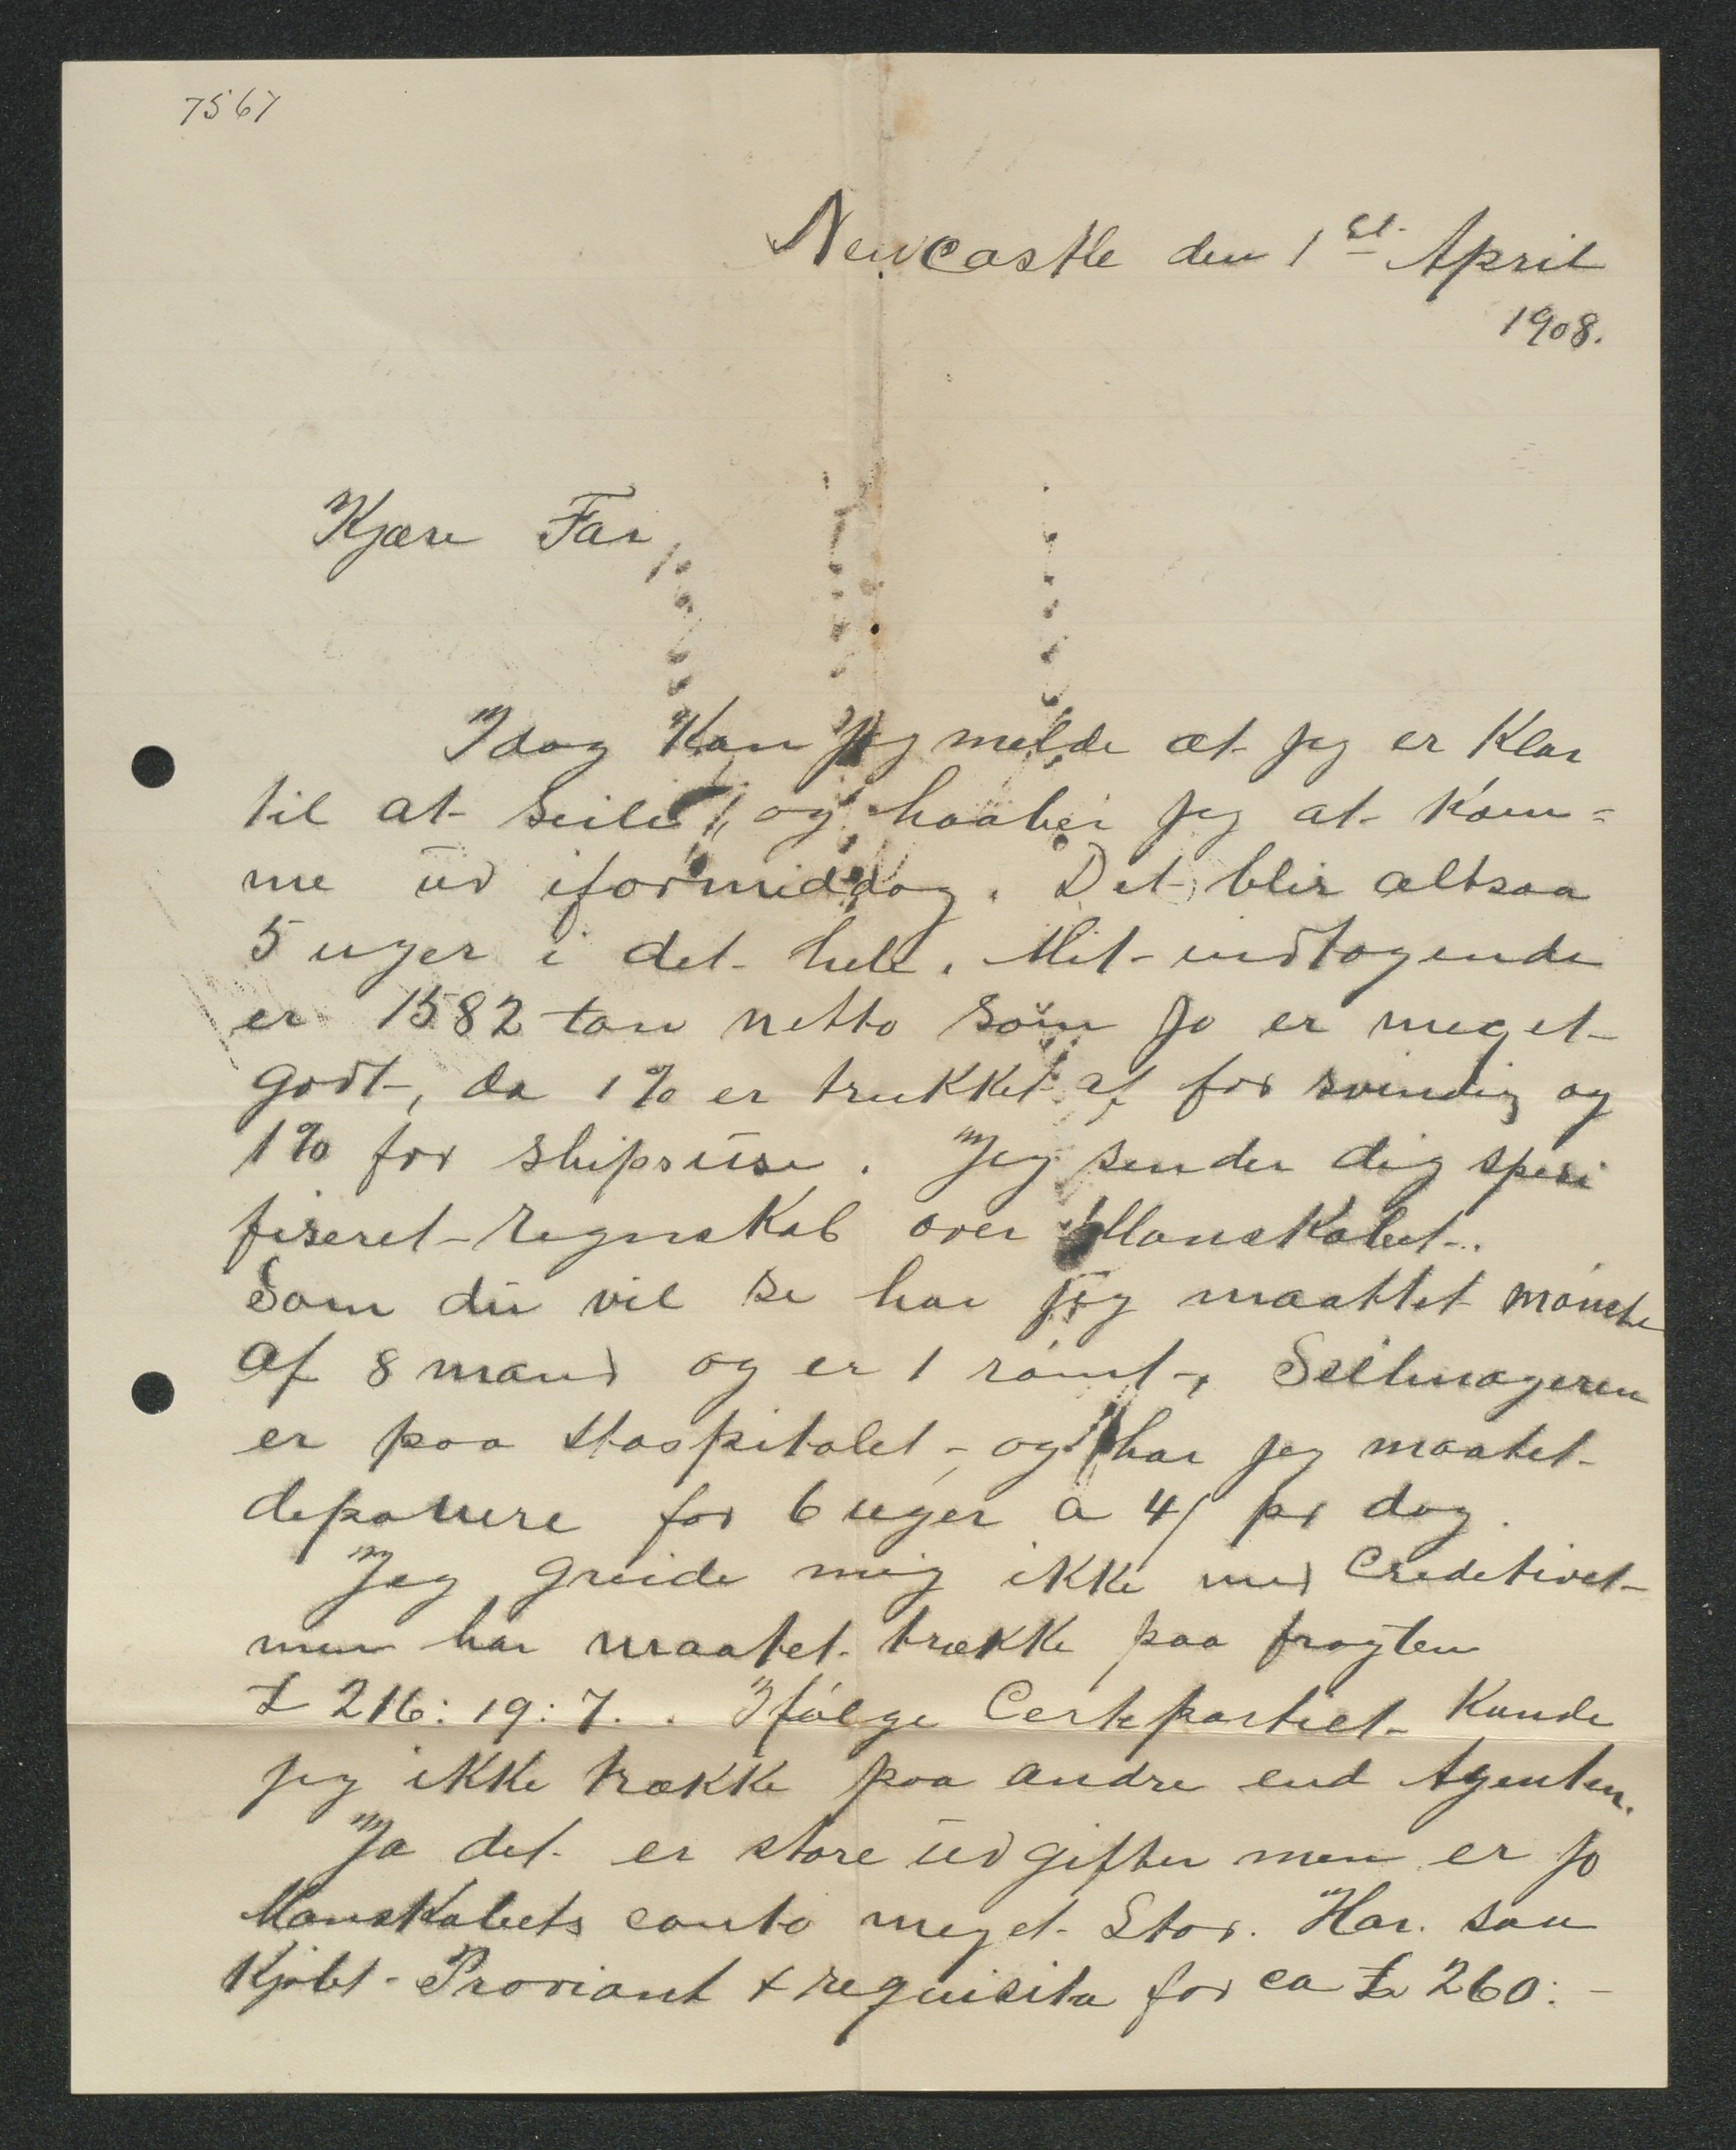 7567
Newcastle den 1st April
1908.
Kjære Far,
Idag Kan jeg melde at jeg er Klar
til at seile, og haaber jeg at Kom=
me ud iformiddag. Det blir altsaa
5 uger i det hele. Mit indtagende
er 1582 ton netto som jo er meget
godt, da 1% er trukket af for svindig og
1% for shipsuse. Jeg sender dig spesi
fiseret regnskab over Manskabet.
Som du vil se har jeg maattet mønstre
af 8 mand og er 1 rømt, Seilmageren
er paa Hospitalet, og har jeg maatet
deponere for 6 uger a 4/ pr dag.
Jeg greide mig ikke med Creditivet
men har maatet trække paa fragten
£ 216:19:7. Ifølge Certepartiet Kunde
jeg ikke trække paa andre end Agenten.
Ja det er store udgifter men er jo
Manskabets conto meget stor. Har saa
Kjøbt Proviant & requisita for ca £ 260:-